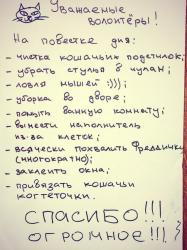 Уважаемые
волонтёры!
На повестке дня:
- чистка кошачьих подстилок;
- убрать стулья в чулан;
- ловля мышей :)));
- уборка во дворе;
- помыть ванную комнату;
- вынести наполнитель
из-за клеток;
- всячески похвалить Фредди
(многократно);
- заклеить окна;
- привязать кошачьи
когтеточки.
СПАСИБО!!!
ОГРОМНОЕ!!!